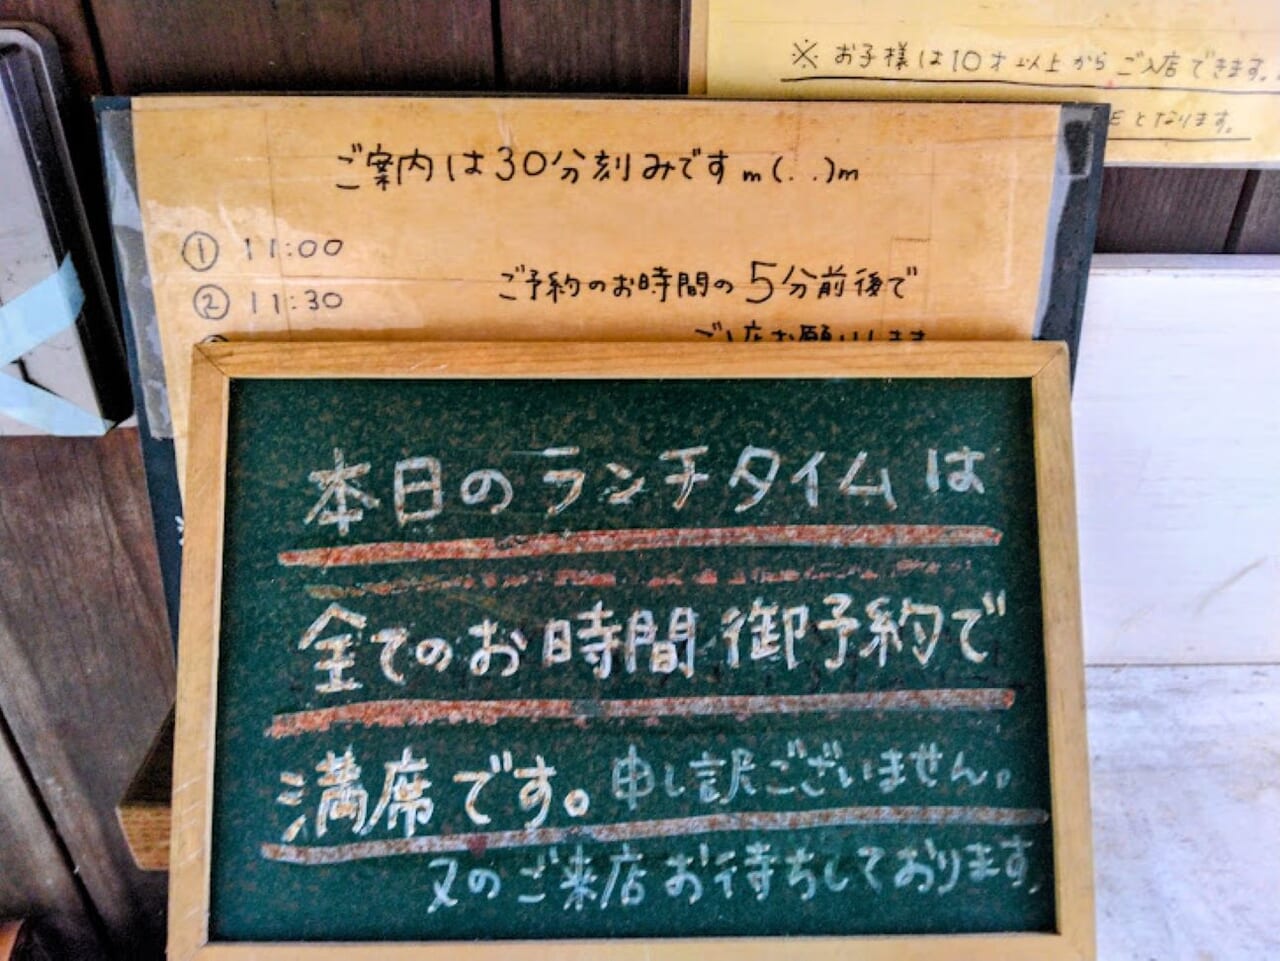 ※ お子様は10才以上からご入店できます。
となります。
ご案内は30分刻みですm(..)m
① 11:00
② 11:30
ご予約のお時間の5分前後で
本日のランチタイムは
全てのお時間御予約で
満席です。申し訳ございません。
又のご来店お待ちしております。